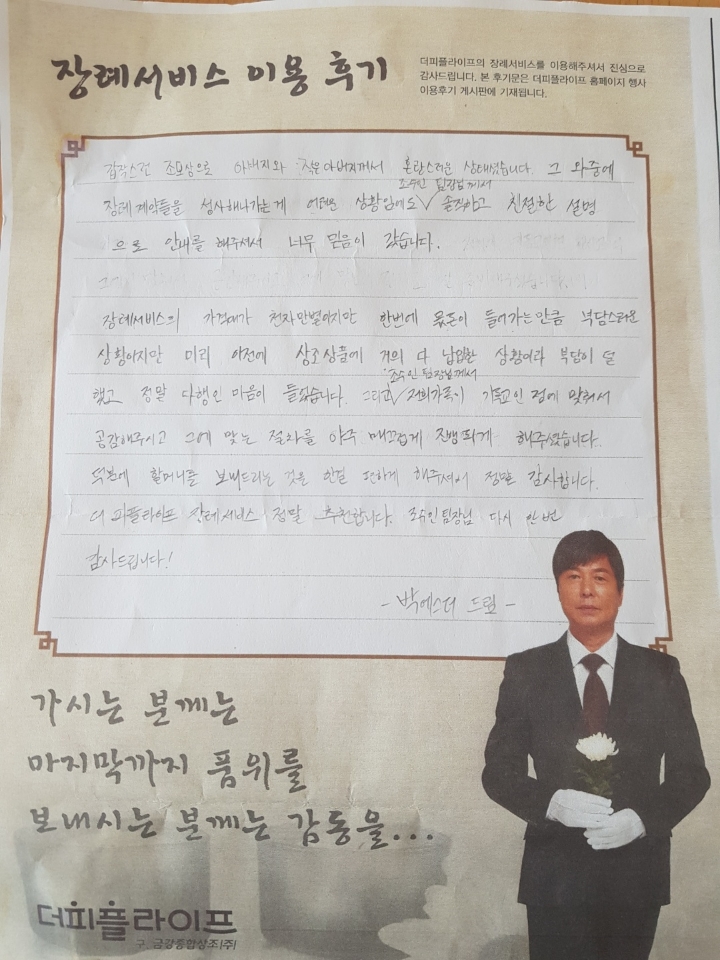 장례서비스 이용 후기
더피플라이프의 장례서비스를 이용해주셔서 진심으로
감사드립니다. 본 후기문은 더피플라이프 홈페이지 행사
이용후기 게시판에 기재됩니다.
갑작스런 조모상으로 아버지와 작은아버지께서 혼란스러운 상태셨습니다. 그 와중에
조수인 팀장님께서
장례 계약들을 성사해나가는게 어려운 상황임에도 솔직하고 친절한 설명
으로 안내를 해주셔서 너무 믿음이 갔습니다.
장례서비스의 가격대가 천차만별이지만 한번에 목돈이 들어가는만큼 부담스러운
상황이지만 미리 이전에 상조상품에 거의 다 납입한 상황이라 부담이 덜
조수인 팀장님께서
했고 정말 다행인 마음이 들었습니다. 그리고 저희가족이 기독교인 점에 맞춰서
공감해주시고 그에 맞는 절차를 아주 매끄럽게 진행되게 해주셨습니다.
덕분에 할머니를 보내드리는 것을 한결 편하게 해주셔서 정말 감사합니다.
더 피플라이프 장례서비스 정말 추천합니다. 조수인 팀장님 다시 한 번
감사드립니다!
- 박에스더 드림 -
가시는 분께는
마지막까지 품위를
보내시는 분께는 감동을...
더피플라이프
구. 금강종합상조(주)